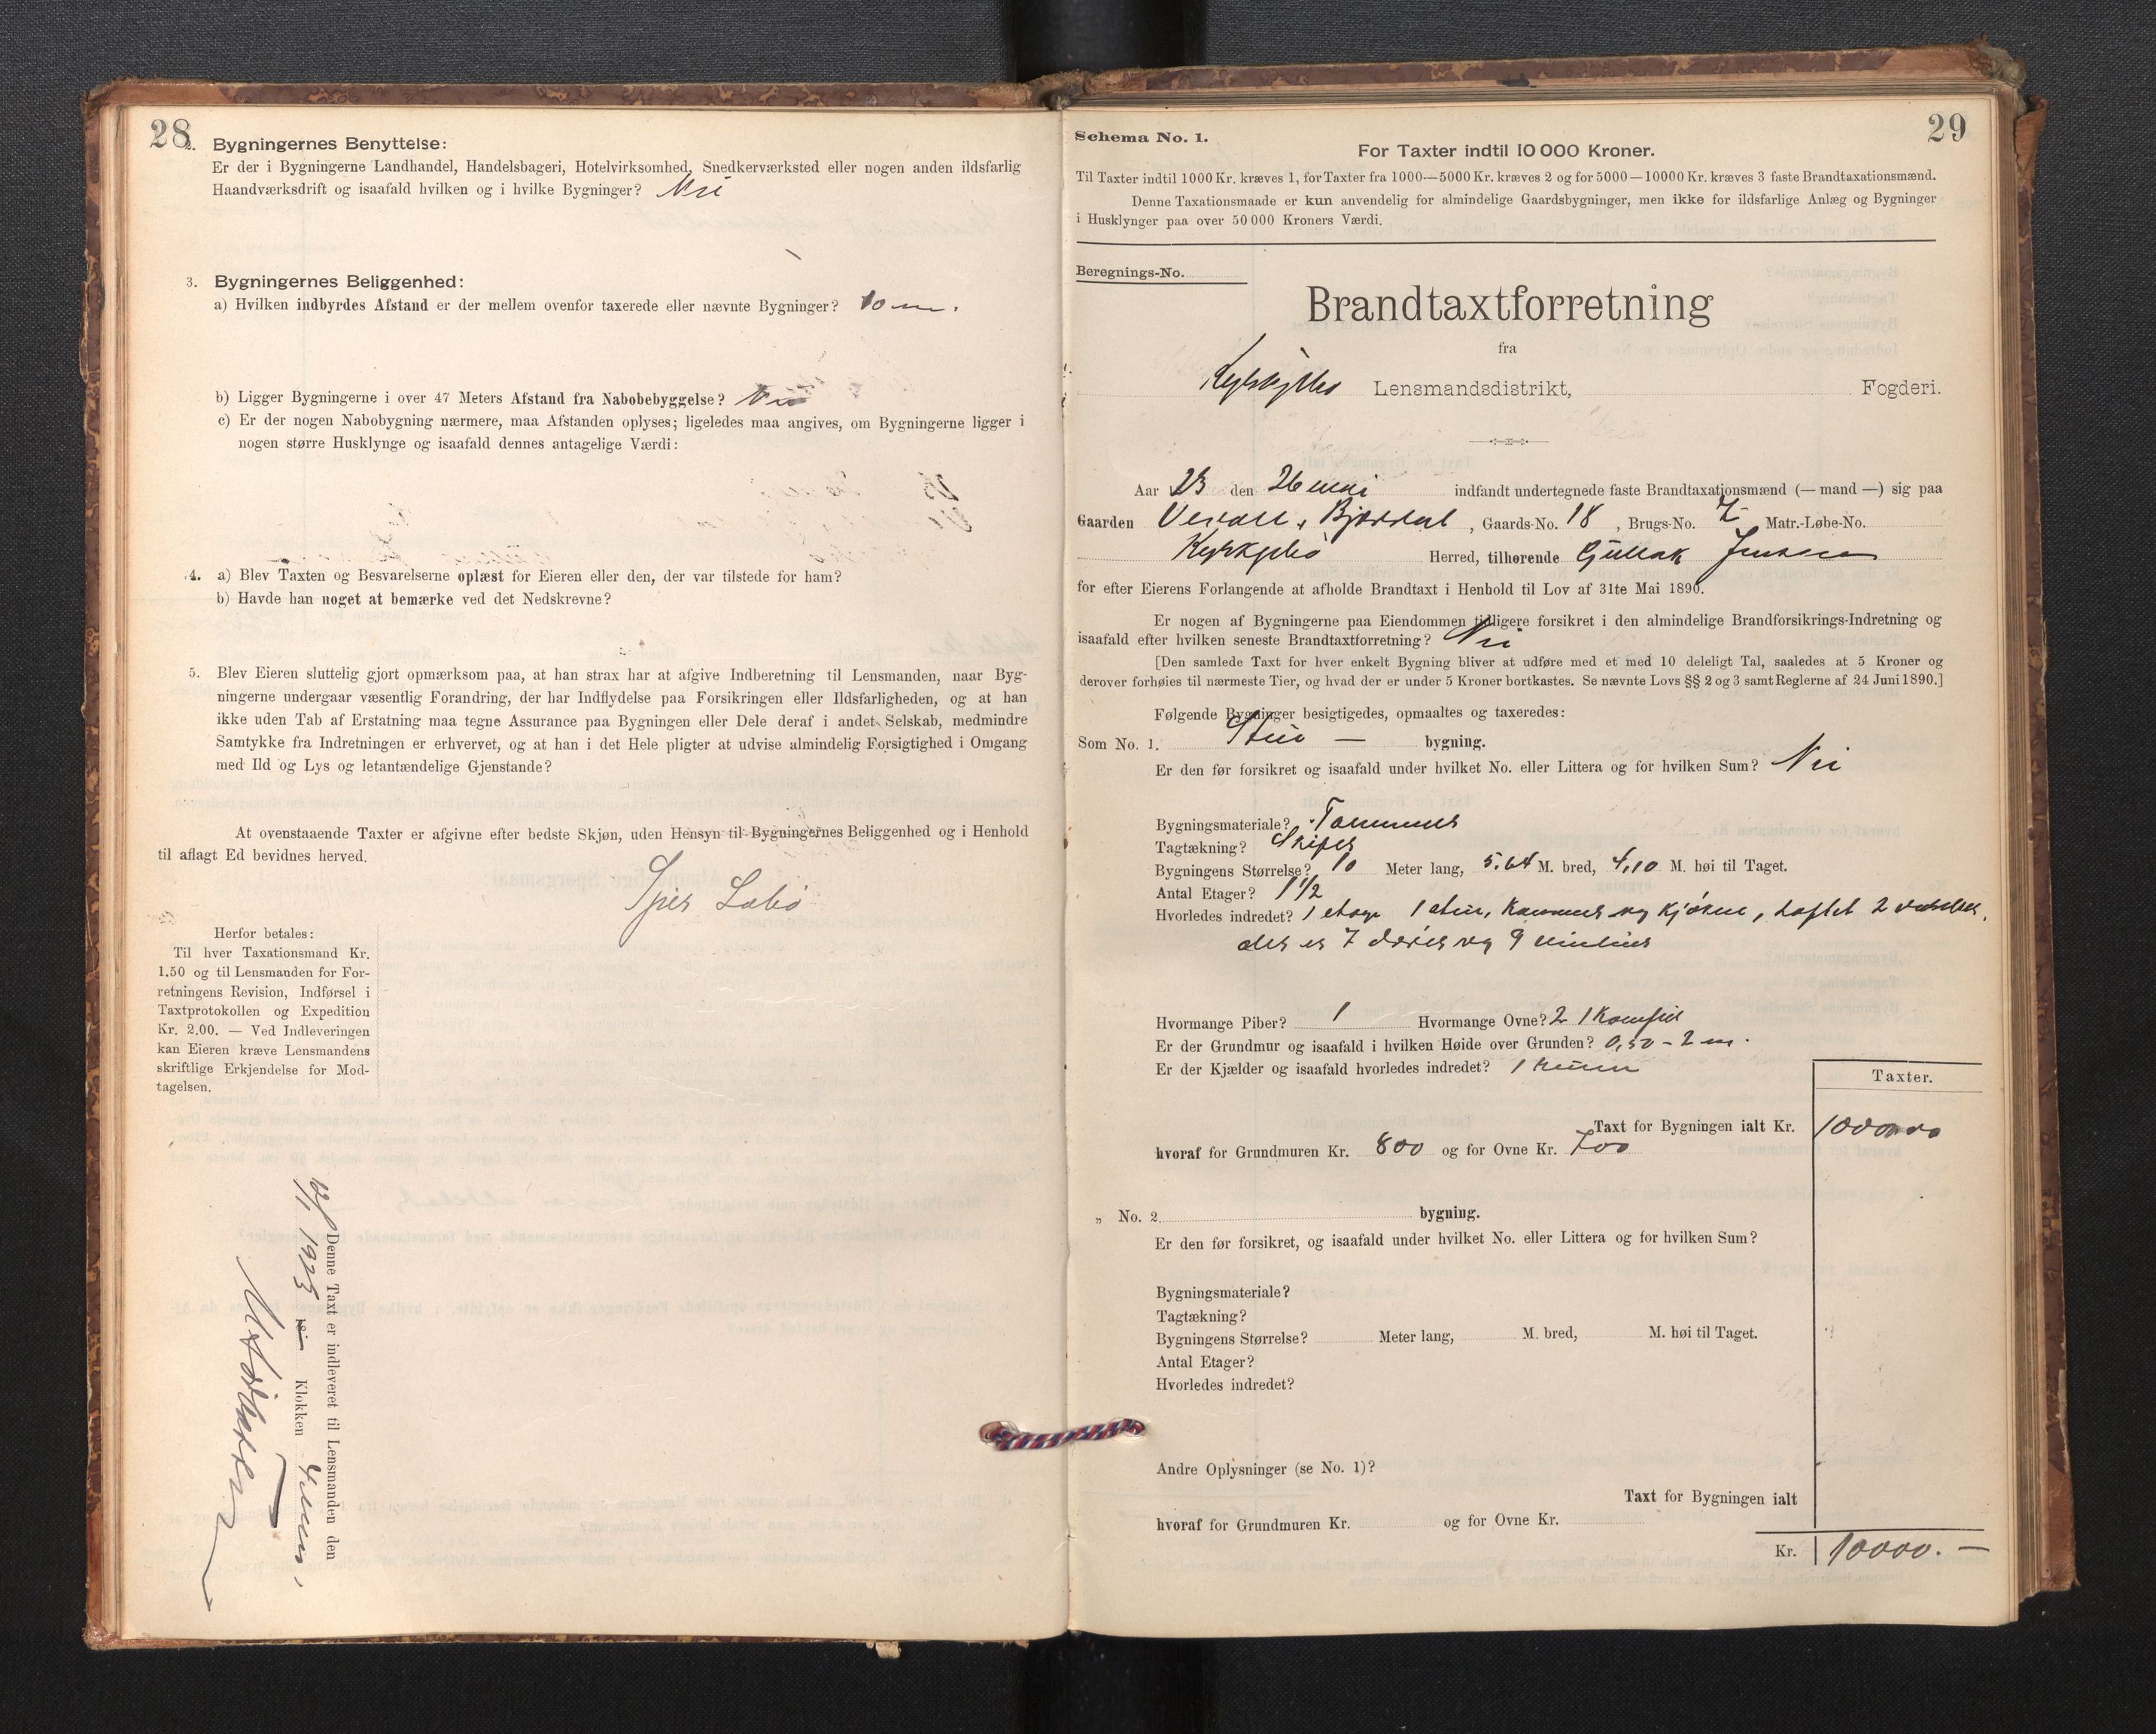 28
2. Bygningernes Benyttelse:
Er der i Bygningerne Landhandel, Handelsbageri, Hotelvirksomhed, Snedkerværksted eller nogen anden ildsfarlig
Haandværksdrift og isaafald hvilken og i hvilke Bygninger? Nei
3. Bygningernes Beliggenhed:
a) Hvilken indbyrdes Afstand er der mellem ovenfor taxerede eller nævnte Bygninger? 10 m.
b) Ligger Bygningerne i over 47 Meters Afstand fra Nabobebyggelse? Nei
c) Er der nogen Nabobygning nærmere, maa Afstanden oplyses; ligeledes maa angives, om Bygningerne ligger i
nogen større Husklynge og isaafald dennes antagelige Værdi:
4. a) Blev Taxten og Besvarelserne oplæst for Eieren eller den, der var tilstede for ham?
b) Havde han noget at bemærke ved det Nedskrevne?
5. Blev Eieren sluttelig gjort opmærksom paa, at han strax har at afgive Indberetning til Lensmanden, naar Byg-
ningerne undergaar væsentlig Forandring, der har Indflydelse paa Forsikringen eller Ildsfarligheden, og at han
ikke uden Tab af Erstatning maa tegne Assurance paa Bygningen eller Dele deraf i andet Selskab, medmindre
Samtykke fra Indretningen er erhvervet, og at han i det Hele pligter at udvise almindelig Forsigtighed i Omgang
med Ild og Lys og letantændelige Gjenstande?
At ovenstaaende Taxter er afgivne efter bedste Skjøn, uden Hensyn til Bygningernes Beliggenhed og i Henhold
til aflagt Ed bevidnes herved.
Herfor betales:
Til hver Taxationsmand Kr.
1.50 og til Lensmanden for For-
retningens Revision, Indførsel i
Taxtprotokollen og Expedition
Kr. 2.00. — Ved Indleveringen
kan Eieren kræve Lensmandens
skriftlige Erkjendelse for Mod-
tagelsen.
Denne Taxt er indleveret til Lensmanden den
1923 Klokken
29
Schema No. 1.
For Taxter indtil 10 000 Kroner.
Til Taxter indtil 1000 Kr. kræves 1, for Taxter fra 1000—5000 Kr. kræves 2 og for 5000—10000 Kr. kræves 3 faste Brandtaxationsmænd.
Denne Taxationsmaade er kun anvendelig for almindelige Gaardsbygninger, men ikke for ildsfarlige Anlæg og Bygninger
i Husklynger paa over 50 000 Kroners Værdi.
Beregnings-No.
Brandtaxtforretning
fra
Kyrkjebø Lensmandsdistrikt, Fogderi.
Aar 23 den 26 mai indfandt undertegnede faste Brandtaxationsmænd (— mand —) sig paa
Gaarden , Gaards-No. 18 , Brugs-No. 7 Matr.-Løbe-No.
Kyrkjebø Herred, tilhørende Gullak Jensen
for efter Eierens Forlangende at afholde Brandtaxt i Henhold til Lov af 31te Mai 1890.
Er nogen af Bygningerne paa Eiendommen tidligere forsikret i den almindelige Brandforsikrings-Indretning og
isaafald efter hvilken seneste Brandtaxtforretning? Nei
[Den samlede Taxt for hver enkelt Bygning bliver at udføre med et med 10 deleligt Tal, saaledes at 5 Kroner og
derover forhøies til nærmeste Tier, og hvad der er under 5 Kroner bortkastes. Se nævnte Lovs §§ 2 og 3 samt Reglerne af 24 Juni 1890.]
Følgende Bygninger besigtigedes, opmaaltes og taxeredes:
Som No. 1. Stue — bygning.
Er den før forsikret og isaafald under hvilket No. eller Littera og for hvilken Sum? Nei
Bygningsmateriale? Tømmer
Tagtækning? Skifer
Bygningens Størrelse? 10 Meter lang, 5.64 M. bred, 4,10 M. høi til Taget.
Antal Etager? 1 1/2
Hvorledes indredet? 1 etage 1 stue, Kammer og Kjøken, Loftet 2 værelser,
der er 7 dører og 9 vinduer
Hvormange Piber? 1 Hvormange Ovne? 2 1 Komfur
Er der Grundmur og isaafald i hvilken Høide over Grunden? 0,50 - 2 m.
Er der Kjælder og isaafald hvorledes indredet? 1 rum
Taxter.
Taxt for Bygningen ialt Kr. 10000
hvoraf for Grundmuren Kr. 800 og for Ovne Kr. 700
„ No. 2 bygning.
Er den før forsikret, og isaafald under hvilket No. eller Littera og for hvilken Sum?
Bygningsmateriale?
Tagtækning?
Bygningens Størrelse? Meter lang, M. bred, M. høi til Taget.
Antal Etager?
Hvorledes indredet?
Andre Oplysninger (se No. 1)?
Taxt for Bygningen ialt
hvoraf for Grundmuren Kr. og for Ovne Kr.
Kr. 10000. —